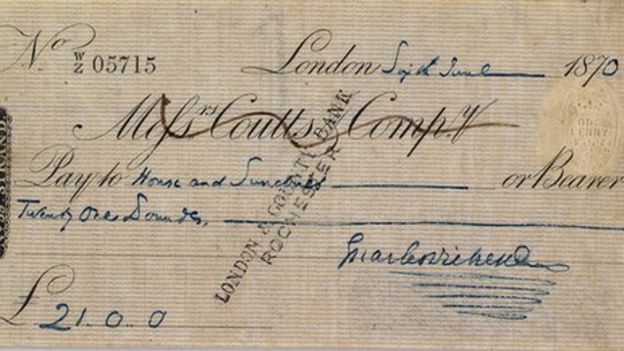 No W/Z 05715 London Sixth June 1870
Messrs Coutts & Compy
ONE PENNY
Pay to House and Sundries or Bearer
Twenty One Pounds
LONDON & COUNTY BANK
ROCHESTER
Charles Dickens
£ 21.0.0